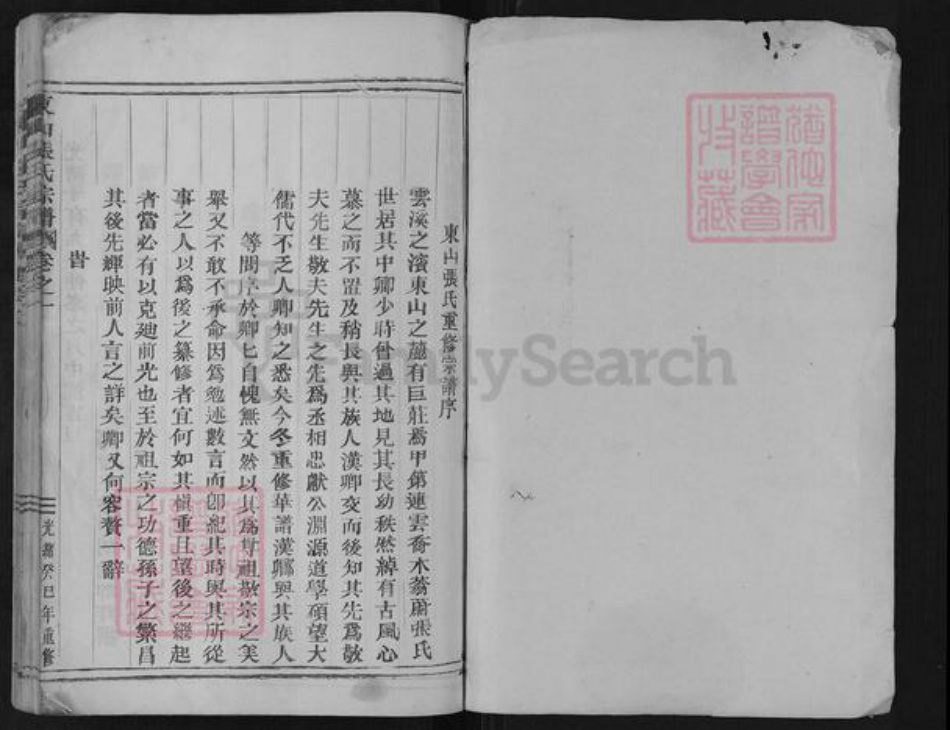 東山張氏重修宗譜序
雲溪之濱東山之麓有巨莊焉甲第連雲喬木蓊蔚張氏
世居其中卿少時曾過其地見其長幼秩然綽有古風心
慕之而不置及稍長與其族人漢卿交而後知其先爲敬
夫先生敬夫先生之先爲丞相忠獻公淵源道學碩望大
儒代不乏人卿知之悉矣今冬重修華譜漢卿與其族人
等問序於卿卿自愧無文然以其爲尊祖敬宗之美
舉又不敢不承命因爲勉述數言而卽紀其時與其所從
事之人以爲後之纂修者宜何如其慎重且望後之繼起
者當必有以克廸前光也至於祖宗之功德孫子之繁昌
其後先輝映前人言之詳矣卿又何容贅一辭
旹
東山張氏宗譜 卷之一
光緒癸巳年重修
譜學會
收藏
FamilySearch